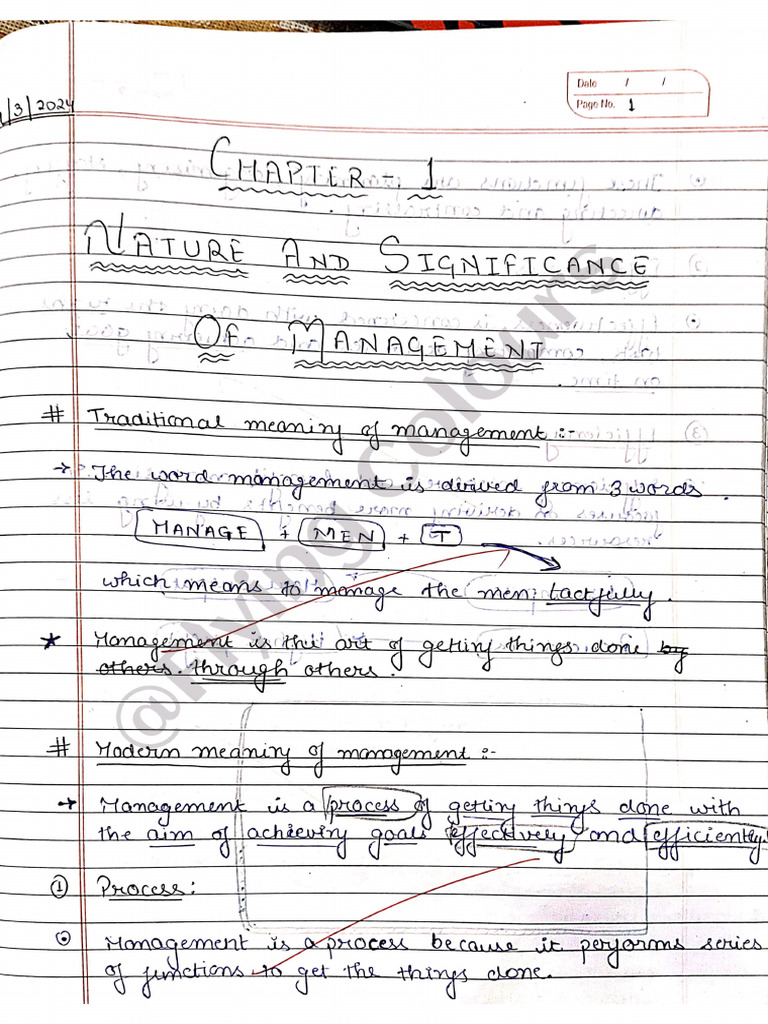 /3/2024
Date / /
Page No. 1
CHAPTER - 1
NATURE AND SIGNIFICANCE
OF MANAGEMENT
# Traditional meaning of management :-
→ The word management is derived from 3 words.
MANAGE + MEN + T
which means to manage the men tactfully.
★ Management is the art of getting things done by
others. through others.
# Modern meaning of management :-
→ Management is a process of getting things done with
the aim of achieving goals effectively and efficiently.
① Process:
Management is a process because it performs series
of functions to get the things done.
@Flying Colours